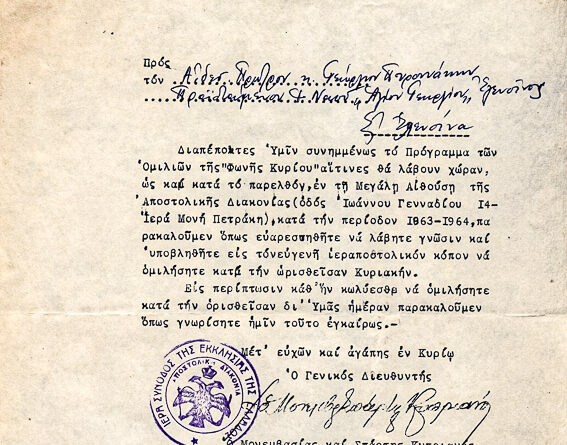 Πρός
τόν Αἰδεσ. Πρωτοπρ. κ. Γεώργιον Πυρουνάκην
Προϊστάμενον Ἱ. Ναοῦ "Ἁγίου Γεωργίου," Ἐλευσῖνος
Ἐλευσῖνα
Διαπέποντες Ὑμῖν συνημμένως τό Πρόγραμμα τῶν
Ὁμιλιῶν τῆς "Φωνῆς Κυρίου" αἵτινες θά λάβουν χώραν,
ὡς καί κατά τό παρελθόν, ἐν τῇ Μεγάλῃ Αἰθούσῃ τῆς
Ἀποστολικῆς Διακονίας (ὁδός Ἰωάννου Γενναδίου Ι4-
Ἱερά Μονή Πετράκη), κατά τήν περίοδον Ι963-Ι964, πα
ρακαλοῦμεν ὅπως εὐαρεστηθῆτε νά λάβητε γνῶσιν καί
ὑποβληθῆτε εἰς τόνεὐγενῆ ἱεραποστολικόν κόπον νά
ὁμιλήσητε κατά τήν ὡρισθεῖσαν Κυριακήν.
Εἰς περίπτωσιν καθ' ἥν κωλύεσθε νά ὁμιλήσητε
κατά τήν ὁρισθεῖσαν δι' Ὑμᾶς ἡμέραν παρακαλοῦμεν
ὅπως γνωρίσητε ἡμῖν τοῦτο ἐγκαίρως.-
Μέτ' εὐχῶν καί ἀγάπης ἐν Κυρίῳ
Ὁ Γενικός Διευθυντής
ΙΕΡΑ ΣΥΝΟΔΟΣ ΤΗΣ ΕΚΚΛΗΣΙΑΣ ΤΗΣ ΕΛΛΑΔΟΣ
ΑΠΟΣΤΟΛΙΚΗ ΔΙΑΚΟΝΙΑ
Μονεμβασίας καί Σπάρτης Κυπριανός